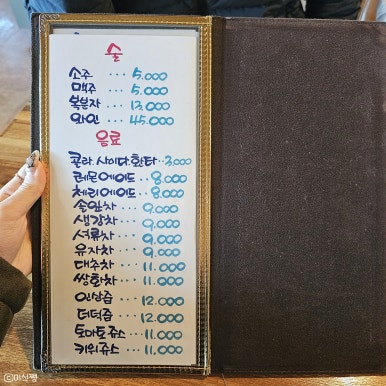 술
소주 ··· 5.000
맥주 ··· 5.000
복분자 ··· 13.000
와인 ··· 45.000
음료
콜라.사이다.환타··3.000
레몬에이드··8.000
체리에이드··8.000
솔잎차···9.000
생강차···9.000
석류차···9.000
유자차···9.000
대추차···11.000
쌍화차···11.000
인삼즙···12.000
더덕즙···12.000
토마토쥬스··11.000
키위쥬스···11.000